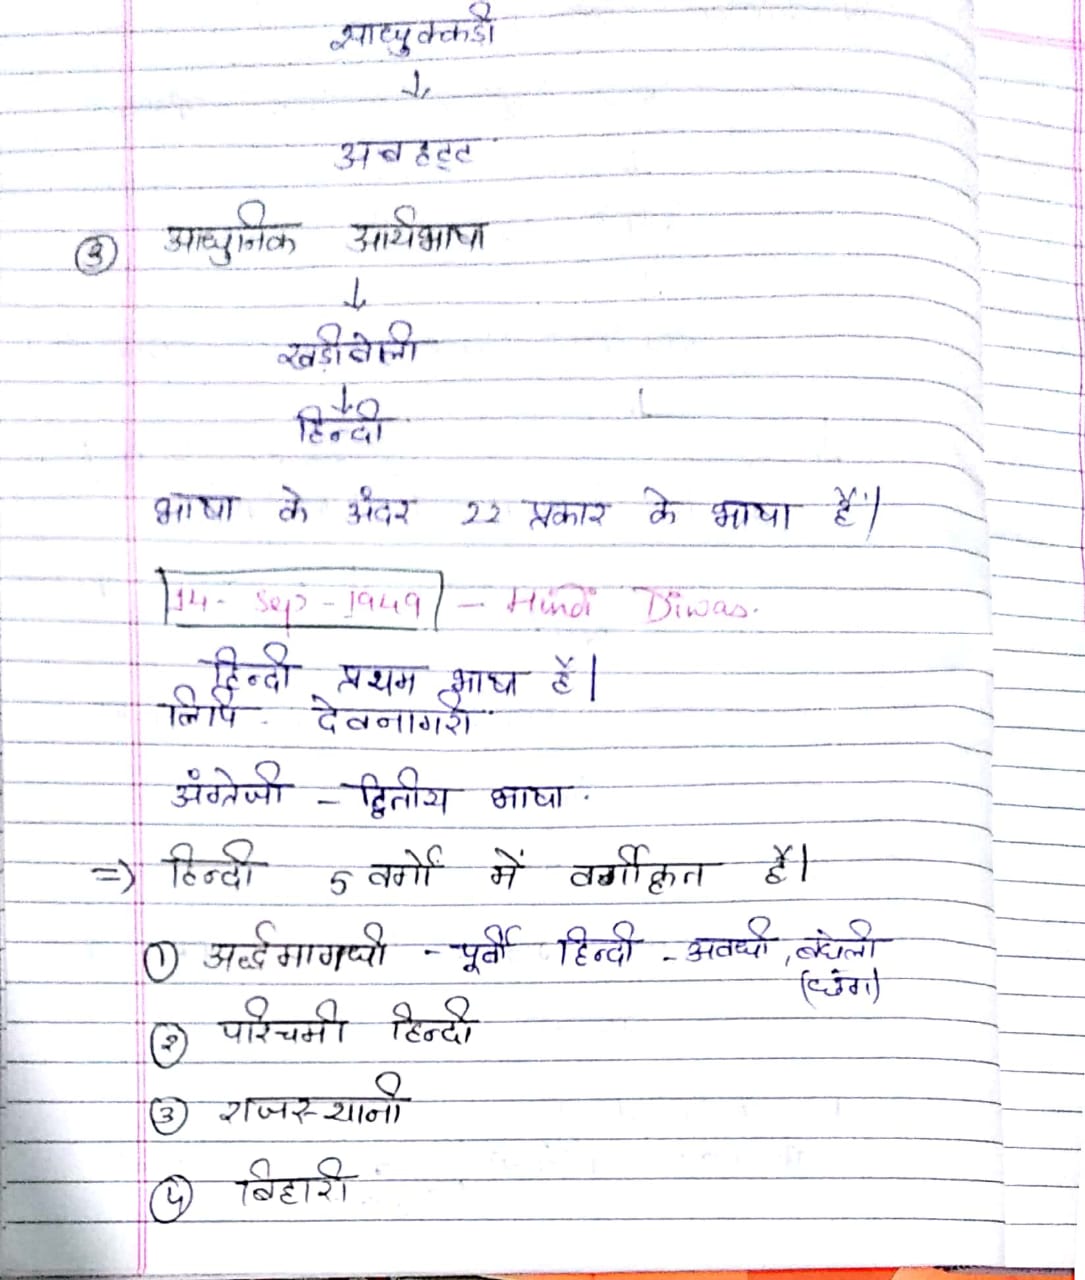 साधुक्कड़ी
↓
अवहट्ट
③ आधुनिक आर्यभाषा
↓
खड़ीबोली
↓
हिन्दी
भाषा के अंदर 22 प्रकार के भाषा हैं।
14- Sep - 1949 - Hindi Diwas.
हिन्दी प्रथम भाषा है।
लिपि - देवनागरी
अंग्रेजी - द्वितीय भाषा.
=> हिन्दी 5 वर्गों में वर्गीकृत है।
① अर्द्धमागधी - पूर्वी हिन्दी - अवधी, बघेली
② पश्चिमी हिन्दी
③ राजस्थानी
④ बिहारी